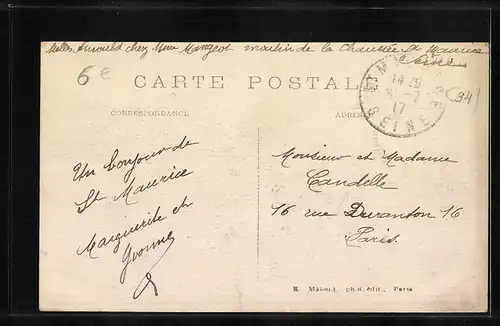 Melles Arnould chez Mme Mangeot moulin de la Chaussée St Maurice
Seine
6 €
CARTE POSTALE
14
7
17
SEINE
(94)
CORRESPONDANCE
ADRES
Un bonjour de
St Maurice
Marguerite et
Yvonne
Monsieur et Madame
Candelle
16 rue Duranton 16
Paris
phot. édit., Paris